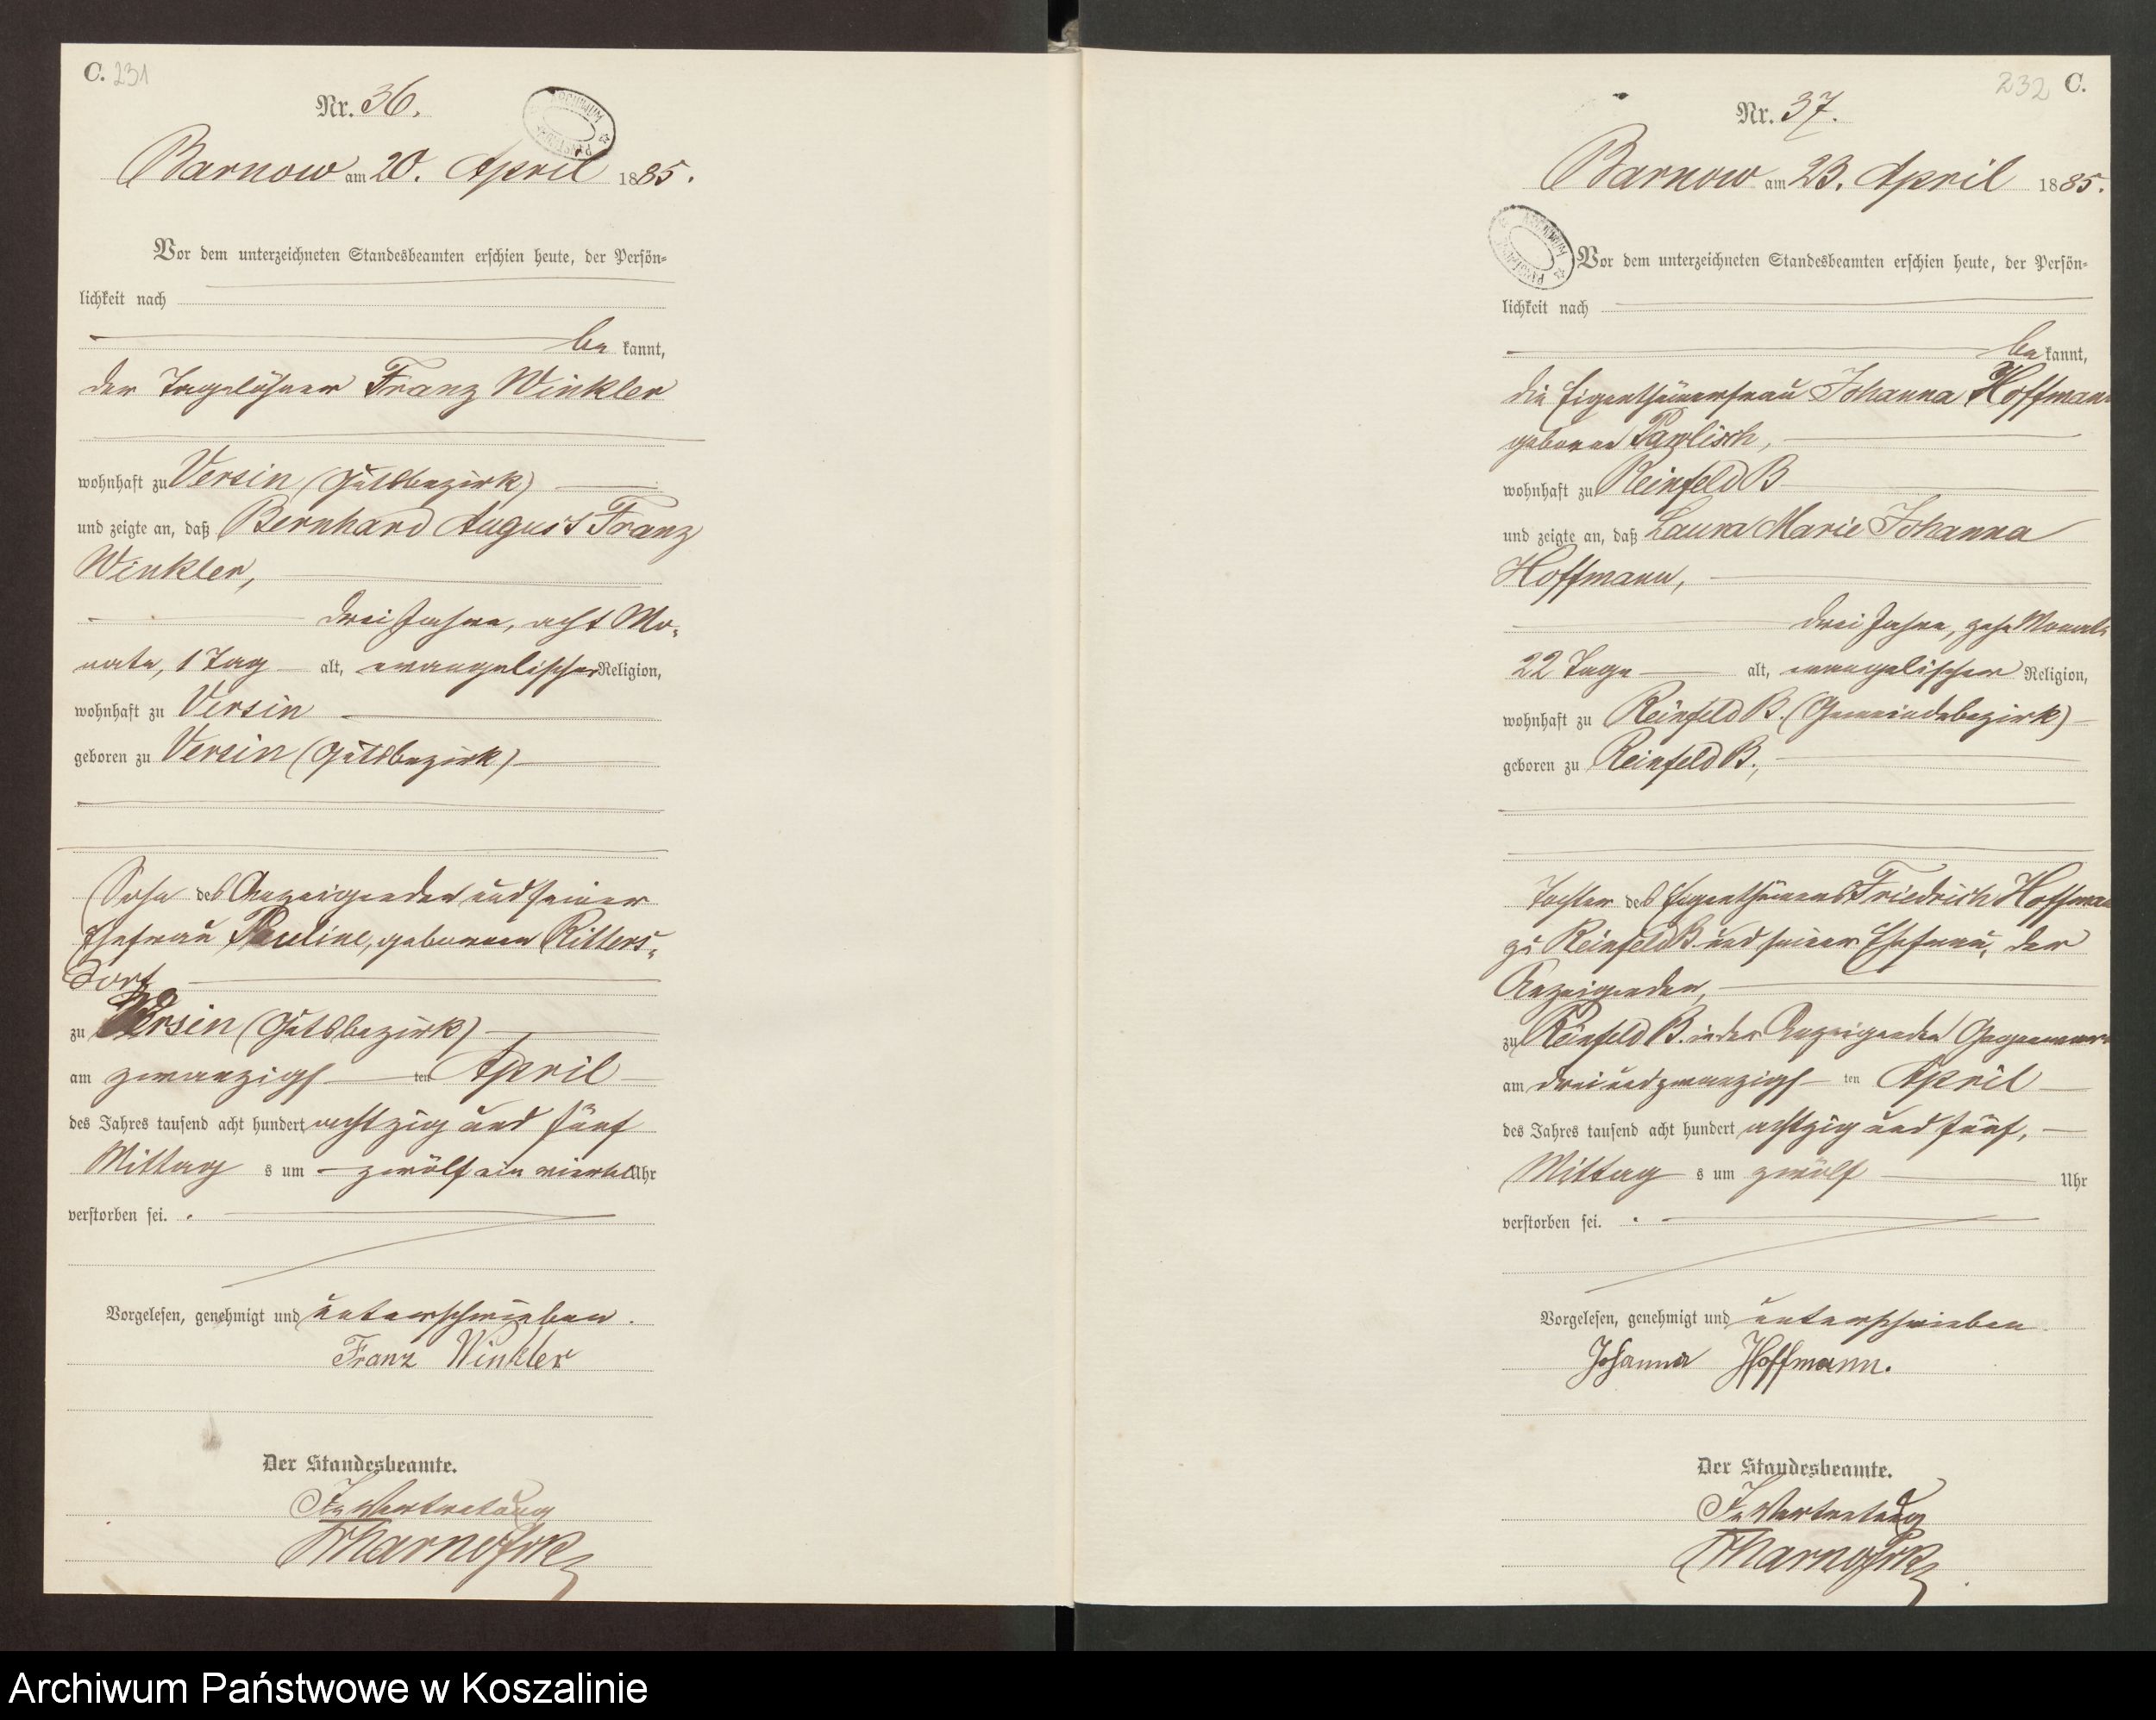 C. 231
Nr. 36.
ARCHIWUM
Barnow am 20. April 1885.
Vor dem unterzeichneten Standesbeamten erschien heute, der Persön=
lichkeit nach
be kannt,
der Tagelöhner Franz Winkler
wohnhaft zu Versin (Gutsbezirk)
und zeigte an, daß Bernhard August Franz
Winkler,
drei Jahre, acht Mo-
nate, 1 Tag alt, evangelischer Religion,
wohnhaft zu Versin
geboren zu Versin (Gutsbezirk)
Sohn des Anzeigenden und seiner
Ehefrau Pauline, geborenen Ritters-
dorf
zu Versin (Gutsbezirk)
am zwanzigs ten April
des Jahres tausend acht hundert achtzig und fünf
Mittag s um zwölf ein viertel Uhr
verstorben sei.
Vorgelesen, genehmigt und unterschrieben.
Franz Winkler
Der Standesbeamte.
In Vertretung
232 C.
Nr. 37.
ARCHIWUM
Barnow am 23. April 1885.
Vor dem unterzeichneten Standesbeamten erschien heute, der Persön=
lichkeit nach
be kannt,
die Eigenthümerfrau Johanna Hoffmann
geborne
wohnhaft zu Reinfeld B
und zeigte an, daß Laura Marie Johanna
Hoffmann,
drei Jahre, zehn Monate
22 Tage alt, evangelischer Religion,
wohnhaft zu Reinfeld B. (Gemeindebezirk)
geboren zu Reinfeld B.,
Tochter des Eigenthümers Friedrich Hoffmann
zu Reinfeld B. und seiner Ehefrau, der
Anzeigenden,
zu Reinfeld B. in der Anzeigenden Gegenwart
am drei und zwanzigs ten April
des Jahres tausend acht hundert achtzig und fünf,
Mittag s um zwölf Uhr
verstorben sei.
Vorgelesen, genehmigt und unterschrieben.
Johanna Hoffmann.
Der Standesbeamte.
In Vertretung
Archiwum Państwowe w Koszalinie